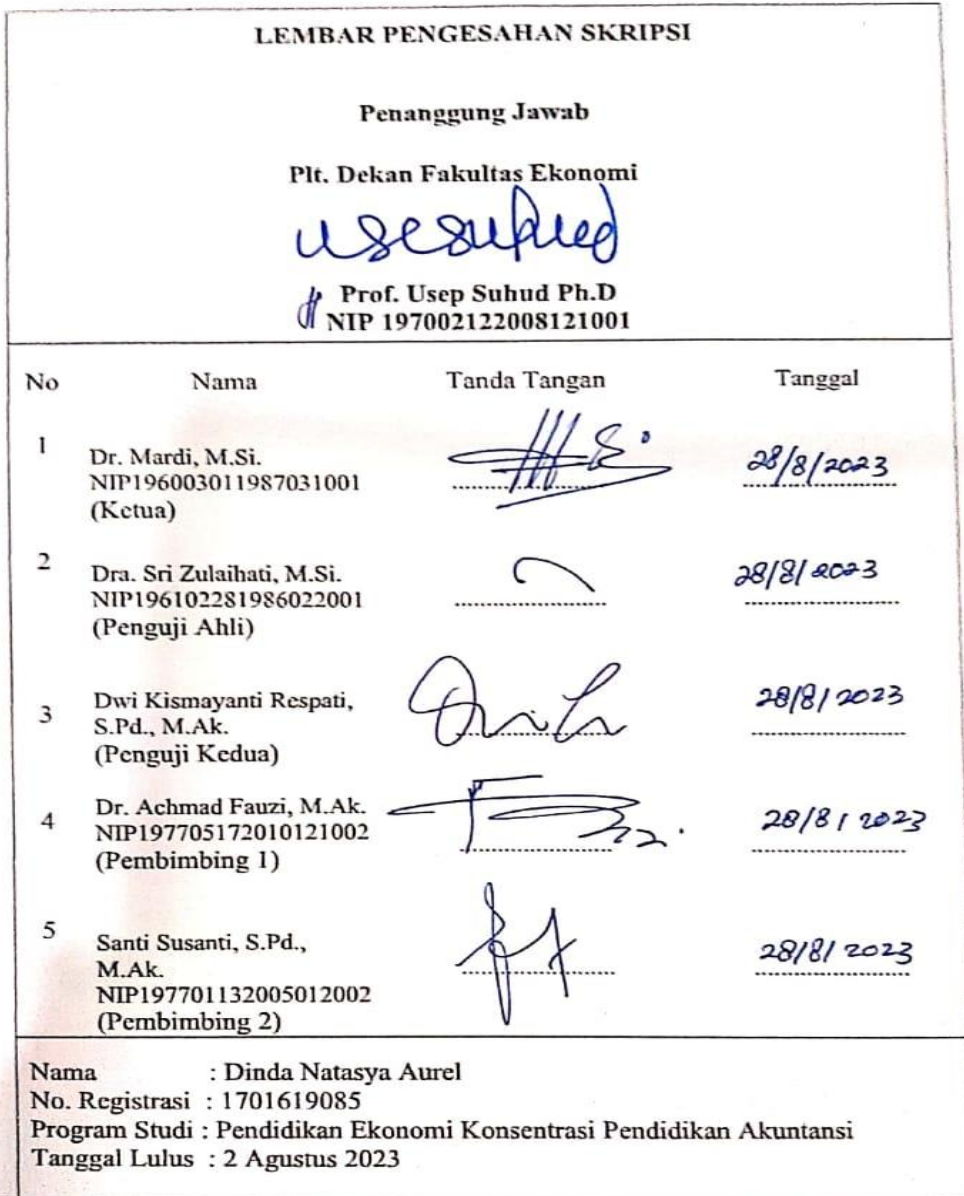 LEMBAR PENGESAHAN SKRIPSI
Penanggung Jawab
Plt. Dekan Fakultas Ekonomi
usesuhud
Prof. Usep Suhud Ph.D
NIP 197002122008121001
No Nama Tanda Tangan Tanggal
1 Dr. Mardi, M.Si. 28/8/2023
NIP196003011987031001
(Ketua)
2 Dra. Sri Zulaihati, M.Si. 28/8/2023
NIP196102281986022001
(Penguji Ahli)
3 Dwi Kismayanti Respati, 28/8/2023
S.Pd., M.Ak.
(Penguji Kedua)
4 Dr. Achmad Fauzi, M.Ak. 28/8/2023
NIP197705172010121002
(Pembimbing 1)
5 Santi Susanti, S.Pd., 28/8/2023
M.Ak.
NIP197701132005012002
(Pembimbing 2)
Nama : Dinda Natasya Aurel
No. Registrasi : 1701619085
Program Studi : Pendidikan Ekonomi Konsentrasi Pendidikan Akuntansi
Tanggal Lulus : 2 Agustus 2023